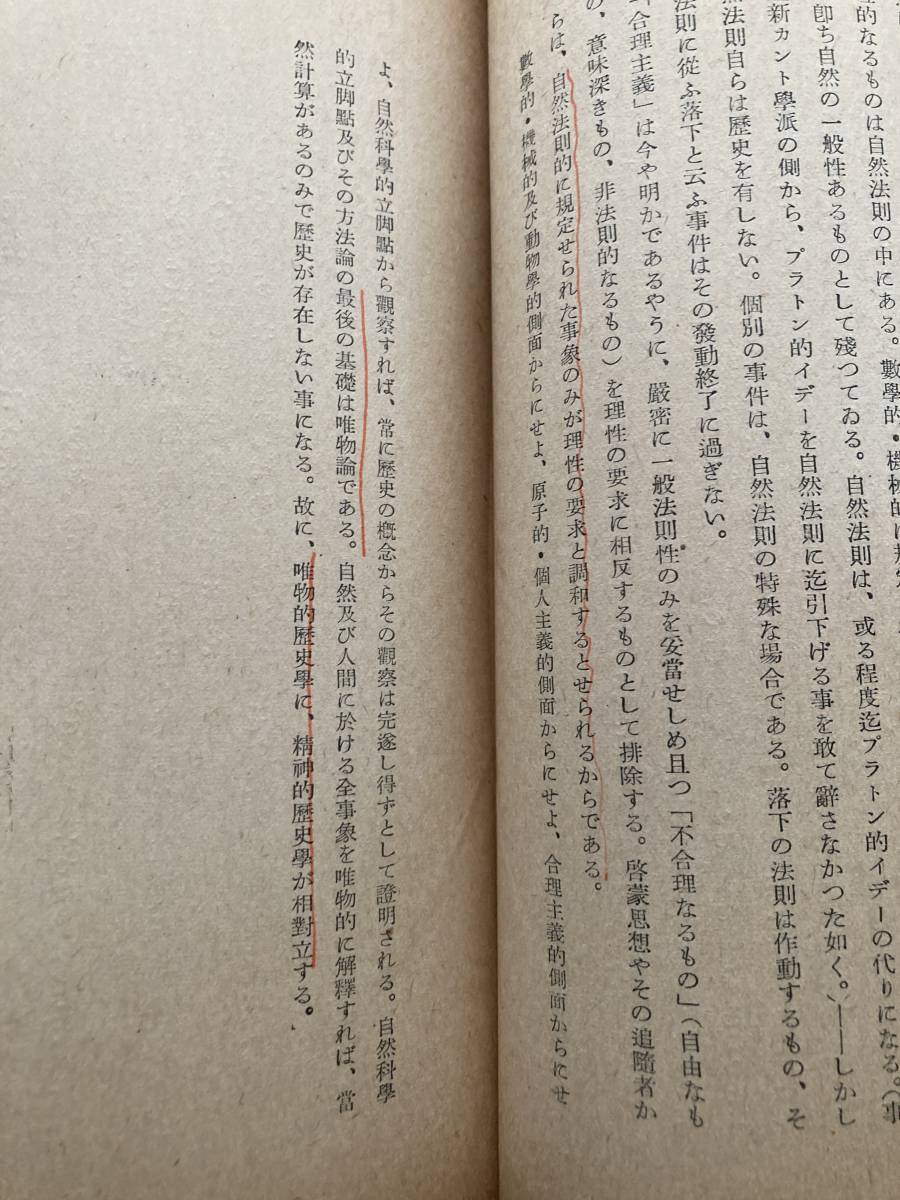 的なるものは自然法則の中にある。數學的・機械的に規定
即ち自然の一般性あるものとして殘つてゐる。自然法則は、或る程度迄プラトン的イデーの代りになる。(事
新カント學派の側から、プラトン的イデーを自然法則に迄引下げる事を敢て辭さなかつた如く。)——しかし
然法則自らは歷史を有しない。個別の事件は、自然法則の特殊な場合である。落下の法則は作動するもの、そ
法則に從ふ落下と云ふ事件はその發動終了に過ぎない。
「合理主義」は今や明かであるやうに、嚴密に一般法則性のみを妥當せしめ且つ「不合理なるもの」(自由なも
の、意味深きもの、非法則的なるもの)を理性の要求に相反するものとして排除する。啓蒙思想やその追隨者か
らは、自然法則的に規定せられた事象のみが理性の要求と調和するとせられるからである。
數學的・機械的及び動物學的側面からにせよ、原子的・個人主義的側面からにせよ、合理主義的側面からにせ
よ、自然科學的立脚點から觀察すれば、常に歷史の概念からその觀察は完遂し得ずとして證明される。自然科學
的立脚點及びその方法論の最後の基礎は唯物論である。自然及び人間に於ける全事象を唯物的に解釋すれば、當
然計算があるのみで歷史が存在しない事になる。故に、唯物的歷史學に、精神的歷史學が相對立する。